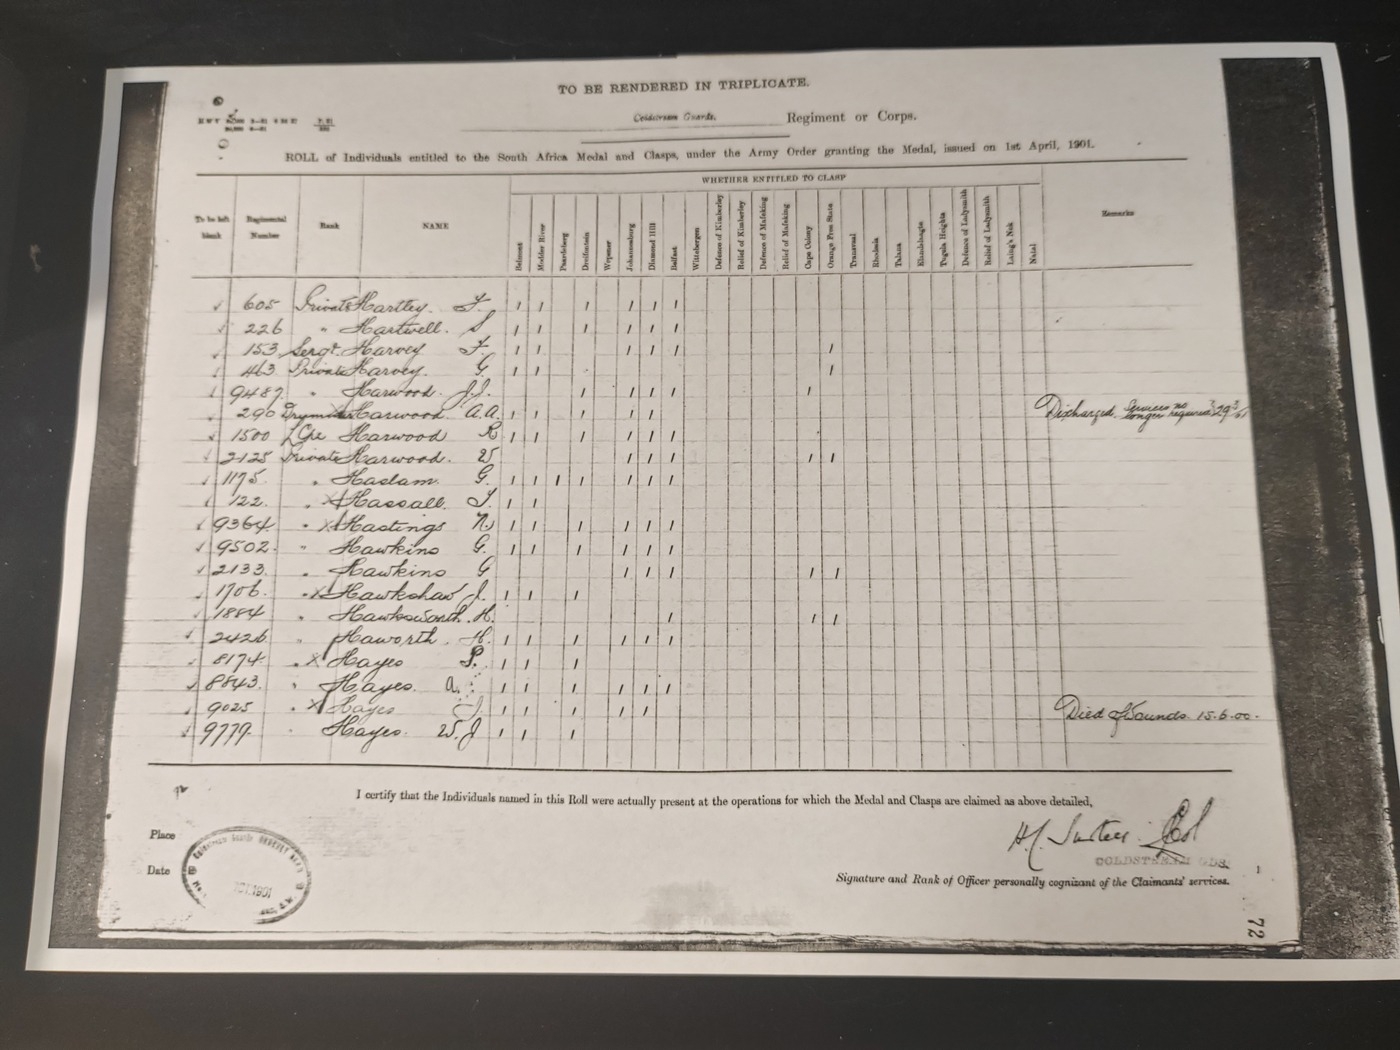 TO BE RENDERED IN TRIPLICATE.
Coldstream Guards. Regiment or Corps.
ROLL of Individuals entitled to the South Africa Medal and Clasps, under the Army Order granting the Medal, issued on 1st April, 1901.
WHETHER ENTITLED TO CLASP
To be left blank Regimental Number Rank NAME Belmont Modder River Paardeberg Driefontein Wepener Johannesburg Diamond Hill Belfast Wittebergen Defence of Kimberley Relief of Kimberley Defence of Mafeking Relief of Mafeking Cape Colony Orange Free State Transvaal Rhodesia Talana Elandslaagte Tugela Heights Defence of Ladysmith Relief of Ladysmith Laing's Nek Natal Remarks
605 Private Hartley. F. 1 1 1 1 1 1
226 " Hartwell. S 1 1 1 1 1 1
153 Sergt. Harvey F. 1 1 1 1 1 1
463 Private Harvey. G. 1 1 1
9487. " Harwood. J.J. 1 1 1 1 1
290 Drummer Harwood A.A. 1 1 1 1 1 Discharged. Services no longer required 29
1500 L Cpe Harwood R 1 1 1 1 1 1
2125 Private Harwood. W 1 1 1 1 1
1175. " Haslam. G. 1 1 1 1 1 1 1
122. " X Hassall. T. 1 1
9364. " X Hastings N. 1 1 1 1 1 1
9502. " Hawkins G. 1 1 1 1 1 1
2133. " Hawkins G 1 1 1 1 1
1706. " X Hawkshaw J. 1 1 1
1884 " Hawksworth. H. 1 1 1
2426 " Haworth. H. 1 1 1 1 1 1
8174. " X Hayes P. 1 1 1
8843. " Hayes. a. 1 1 1 1 1 1
9025 " X Hayes J 1 1 1 1 1 Died of Wounds. 15.6.00.
9779. " Hayes. W.J 1 1 1
I certify that the Individuals named in this Roll were actually present at the operations for which the Medal and Clasps are claimed as above detailed,
Place
Date
1901
Col
COLDSTREAM GDS.
Signature and Rank of Officer personally cognizant of the Claimants' services.
72